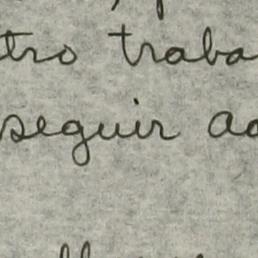 tro traba
seguir ad